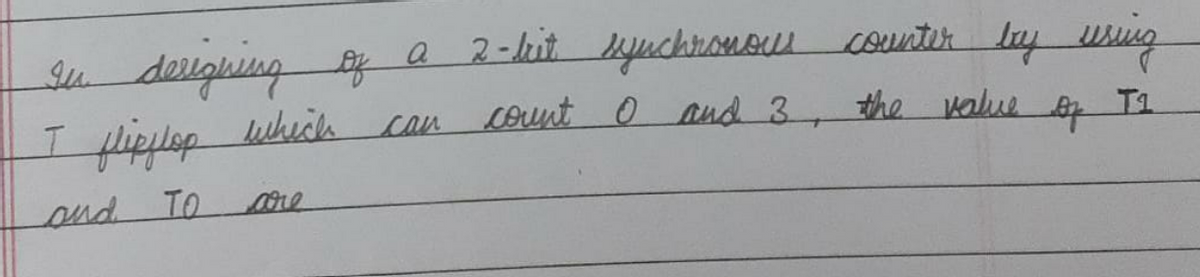 In designing of a 2-bit synchronous counter by using
T flipflop which can count 0 and 3, the value of T1
and T0 are